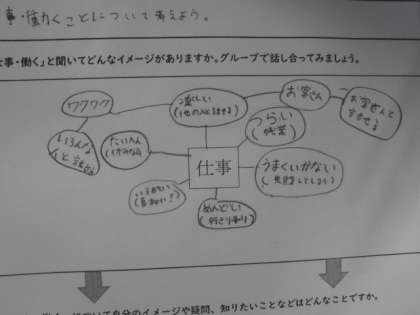 事・働くことについて考えよう。
仕事・働く」と聞いてどんなイメージがありますか。グループで話し合ってみましょう。
ワクワク
楽しい
(他の人と話せる)
お客さん
お客さんと
話せる
いろんな
人と話せる
たいへん
(休みなし)
つらい
(残業)
仕事
うまくいかない
(失敗してしまう)
めんどい
自分のイメージや疑問、知りたいことなどはどんなことですか。